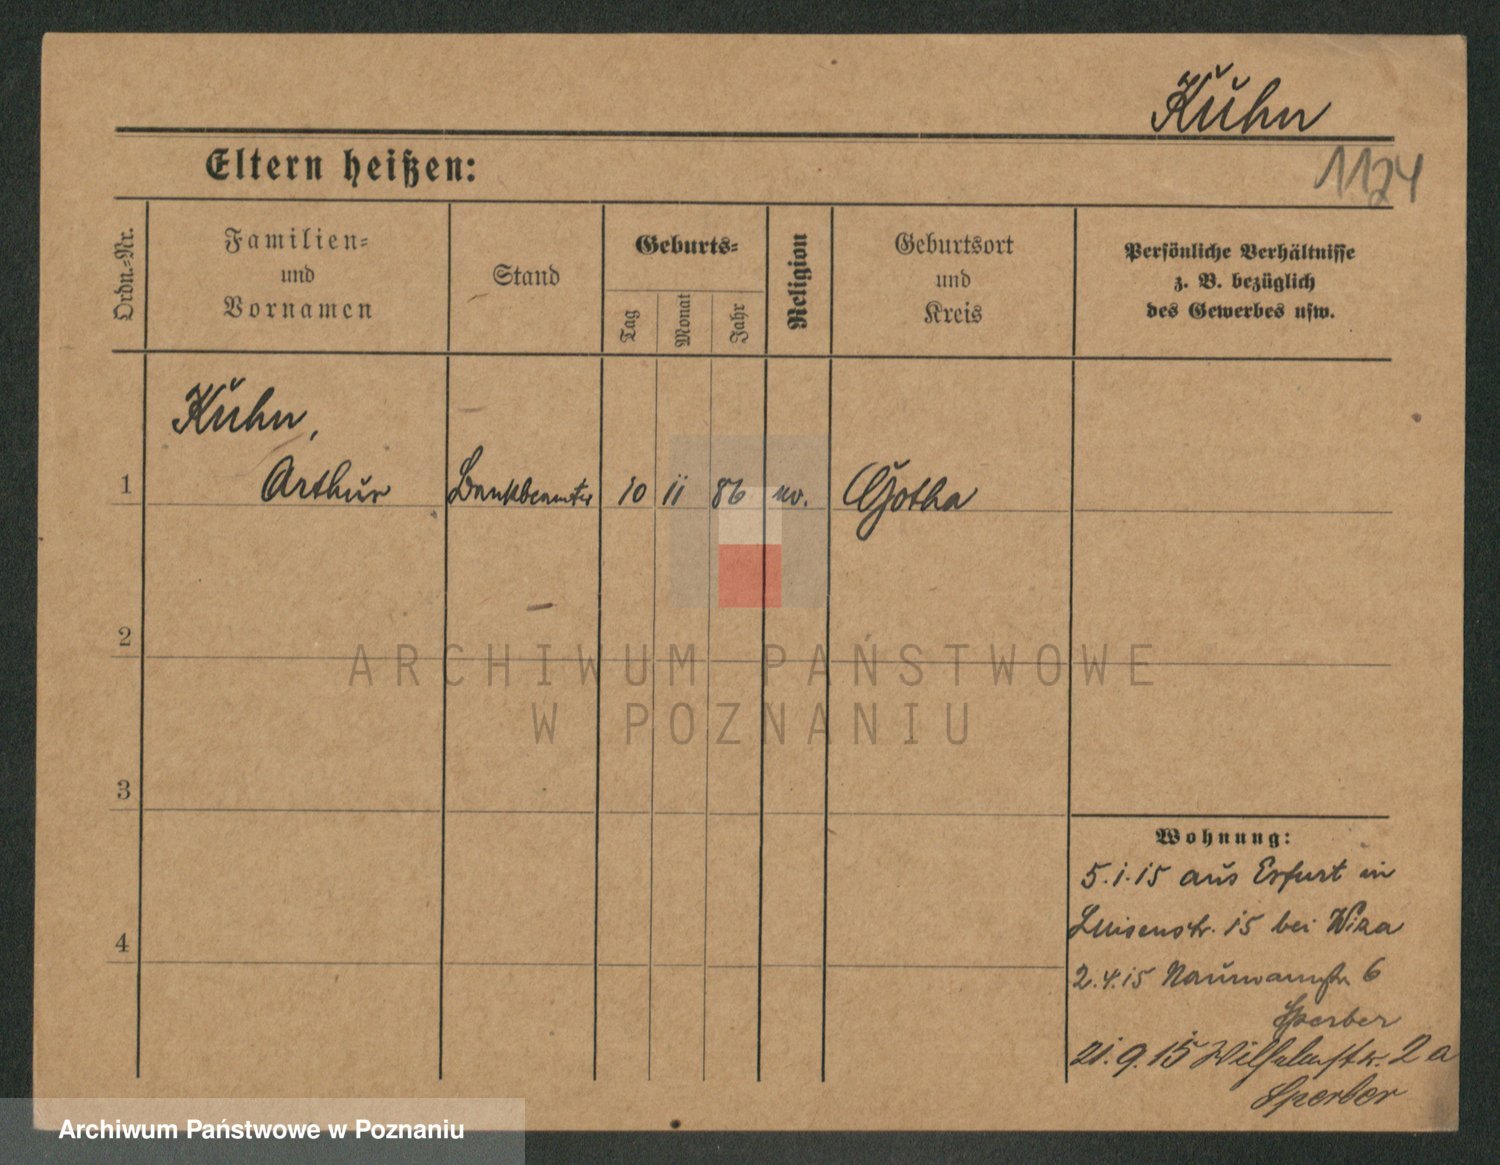 Kuhn
Eltern heißen:
1124
Ordn.-Nr.
Familien-
und
Vornamen
Stand
Geburts-
Tag
Monat
Jahr
Religion
Geburtsort
und
Kreis
Persönliche Verhältnisse
z. B. bezüglich
des Gewerbes usw.
Kuhn,
1 Arthur Bankbeamter 10 11 86 ev. Gotha
2
ARCHIWUM PAŃSTWOWE
W POZNANIU
3
Wohnung:
5.1.15 aus Erfurt in
Luisenstr. 15 bei
4
2.4.15 Naumannstr. 6
Sperber
21.9.15 Wilhelmstr. 2a
Sperber
Archiwum Państwowe w Poznaniu